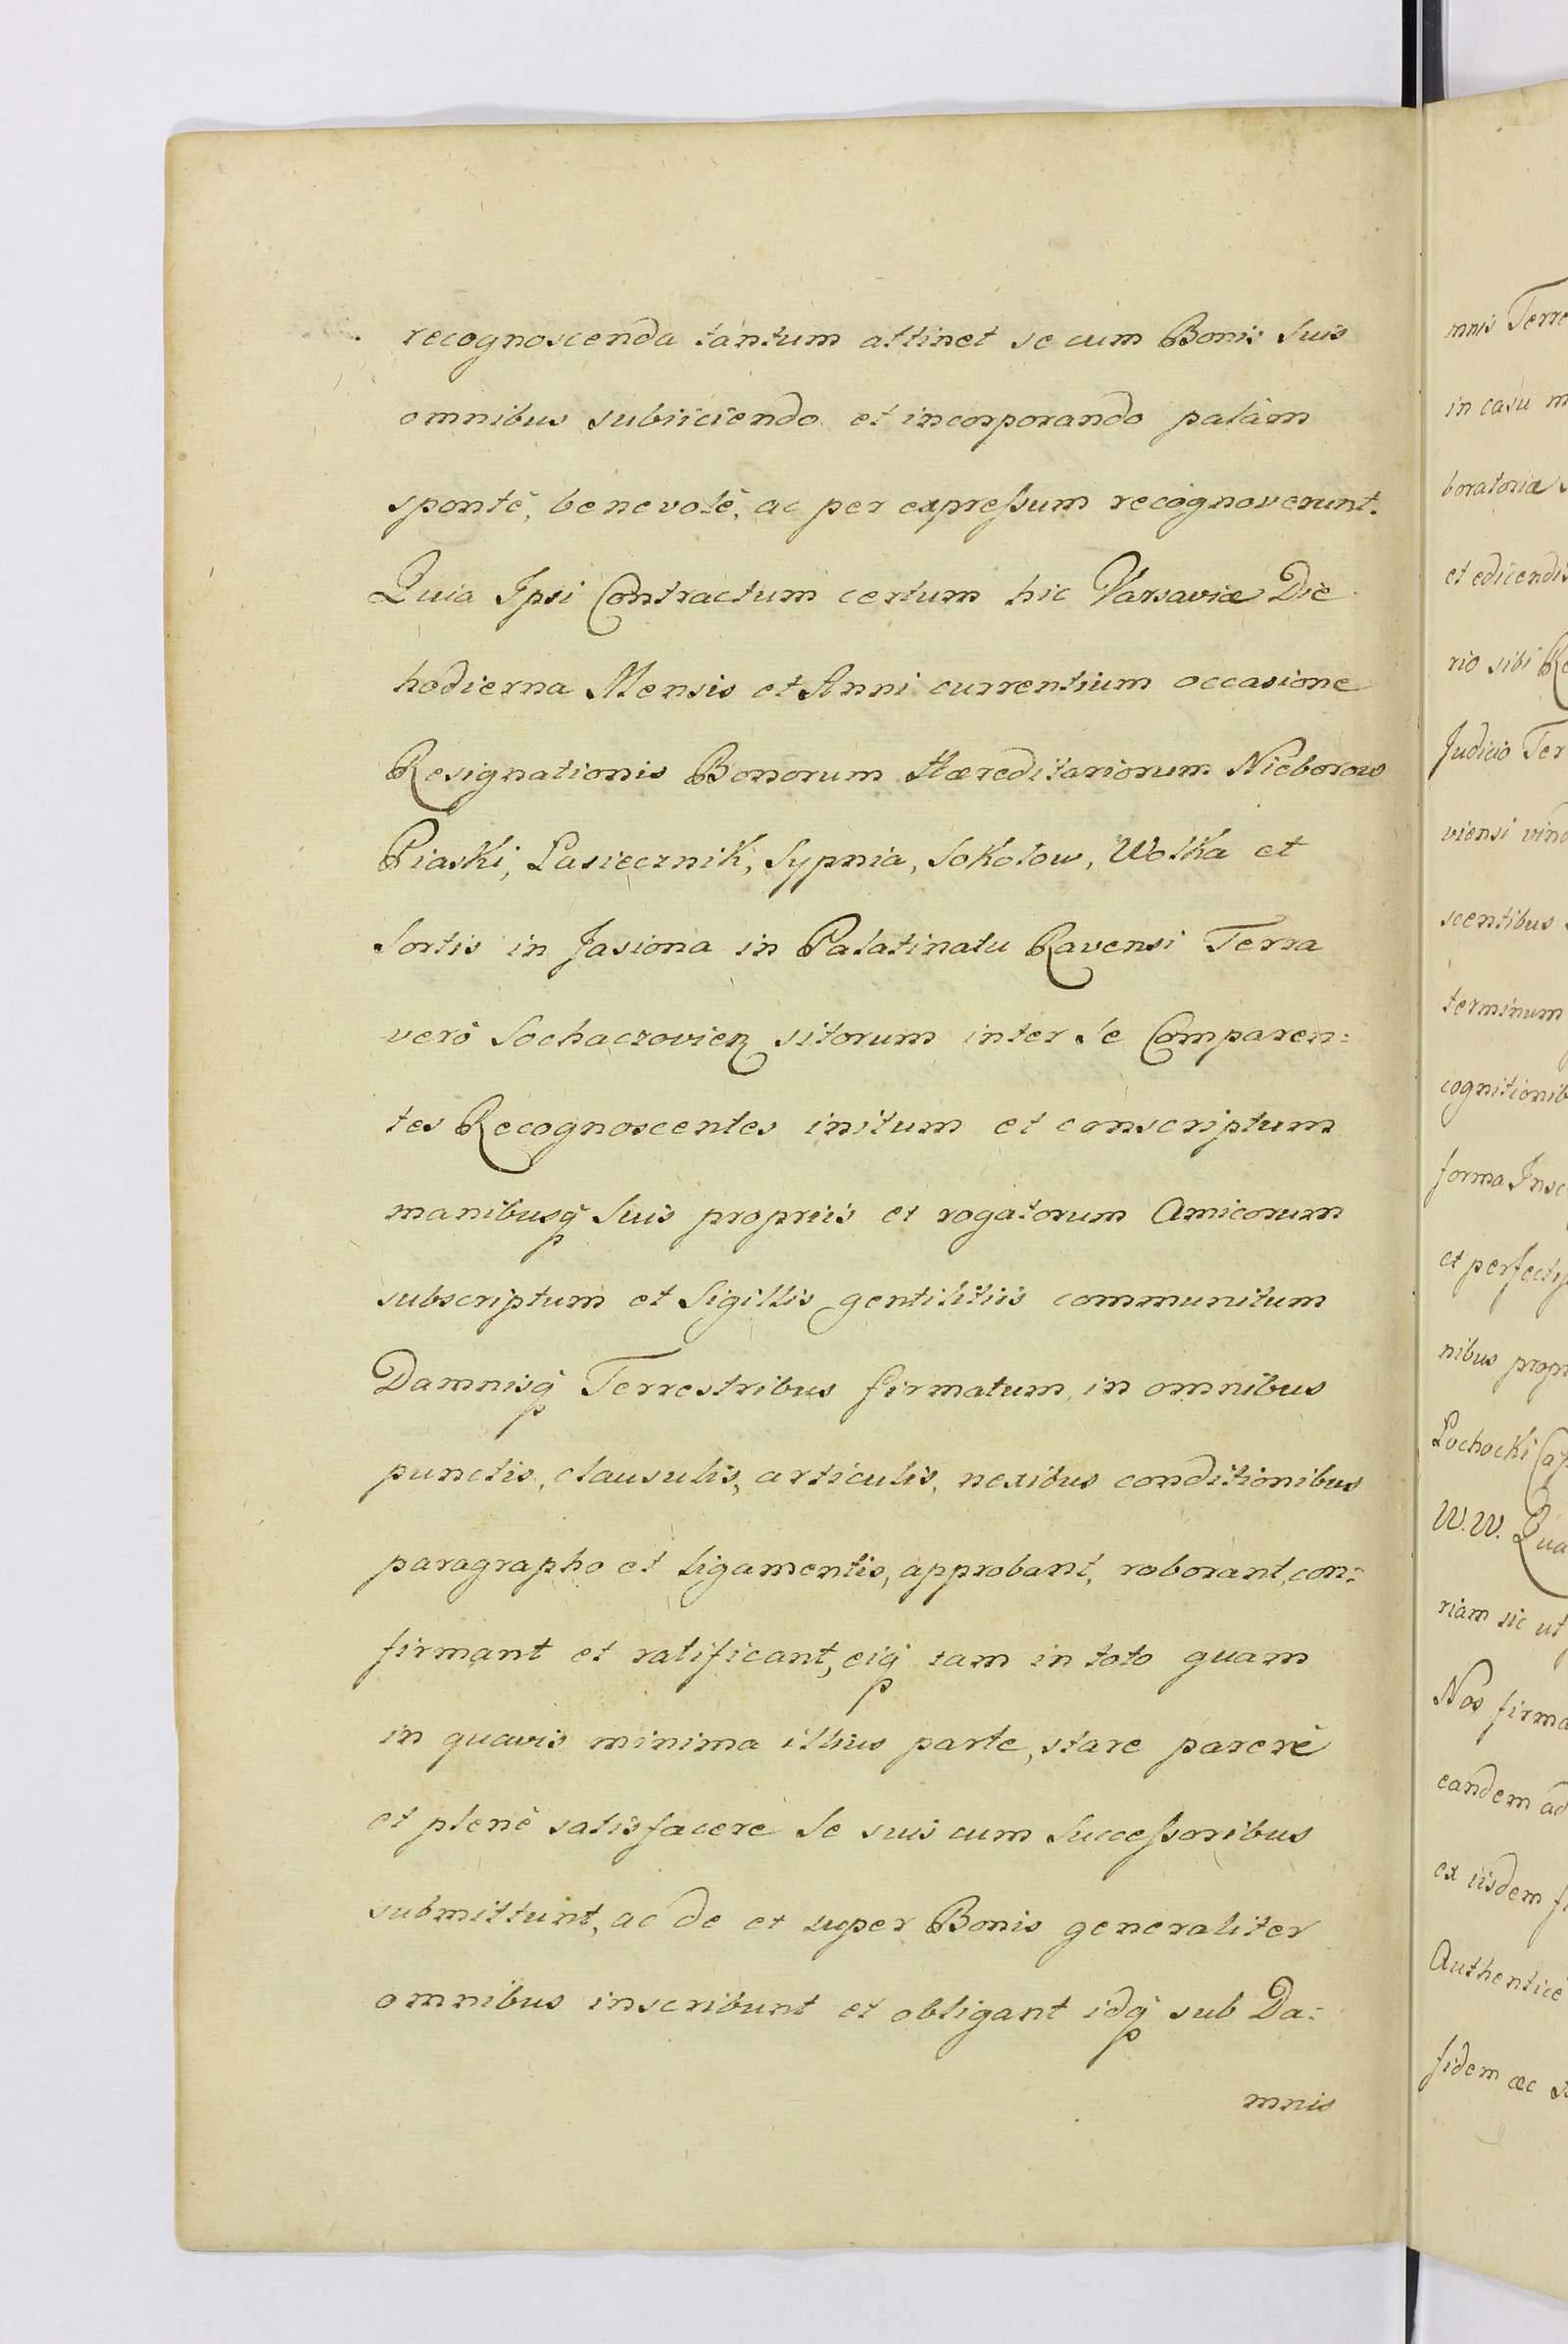 recognoscenda tantum attinet se cum Bonis Suis
omnibus subiiciendo et incorporando palàm
spontè, benevolè, ac per expreſsum recognoverunt.
Quia Ipsi Contractum certum hic Varsaviæ Die
hodierna Mensis et Anni currentium occasione
Resignationis Bonorum Hæreditariorum Nieborow
Piaski, Pasiecznik, Sypnia, Sokolow, Wolka et
Sortis in Jasiona in Palatinatu Ravensi Terra
verò Sochaczovien sitorum inter Se Comparen=
tes Recognoscentes initum et conscriptum
manibusq Suis propriis et rogatorum Amicorum
subscriptum et Sigillis gentilitiis communitum
Damnisq Terrestribus firmatum, in omnibus
punctis, clausulis, articulis, nexibus conditionibus
paragrapho et ligamentis, approbant, roborant, con=
firmant et ratificant, eiq tam in toto quam
in quavis minima illius parte, stare parere
et plenè satisfacere Se suis cum Succeſsoribus
submittunt, ac de et super Bonis generaliter
omnibus inscribunt et obligant idq sub Da=
mnis
mnis Terre
in casu
boratoriæ
et edicendis
rio sibi
Judicio Ter
viensi
scentibus
terminum
cognitionib
forma
et
nibus propr
Lochocki
W.W.
riam sic ut
Nos firma
eandem ad
ex iisdem
Authenticè
fidem ac